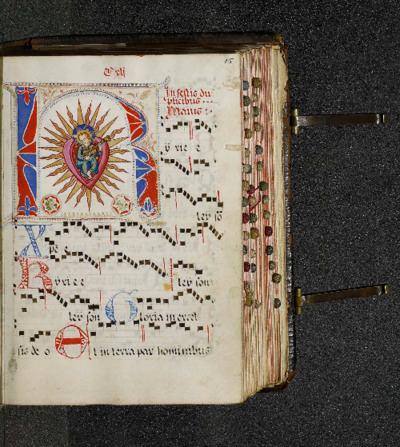 15
In festis du
plicibus
Maius
yrie e
ley sō
Xpe e
Kyrie e
ley son
ley son
Gloria in excel
sis de o
Et in terra pax hominibus